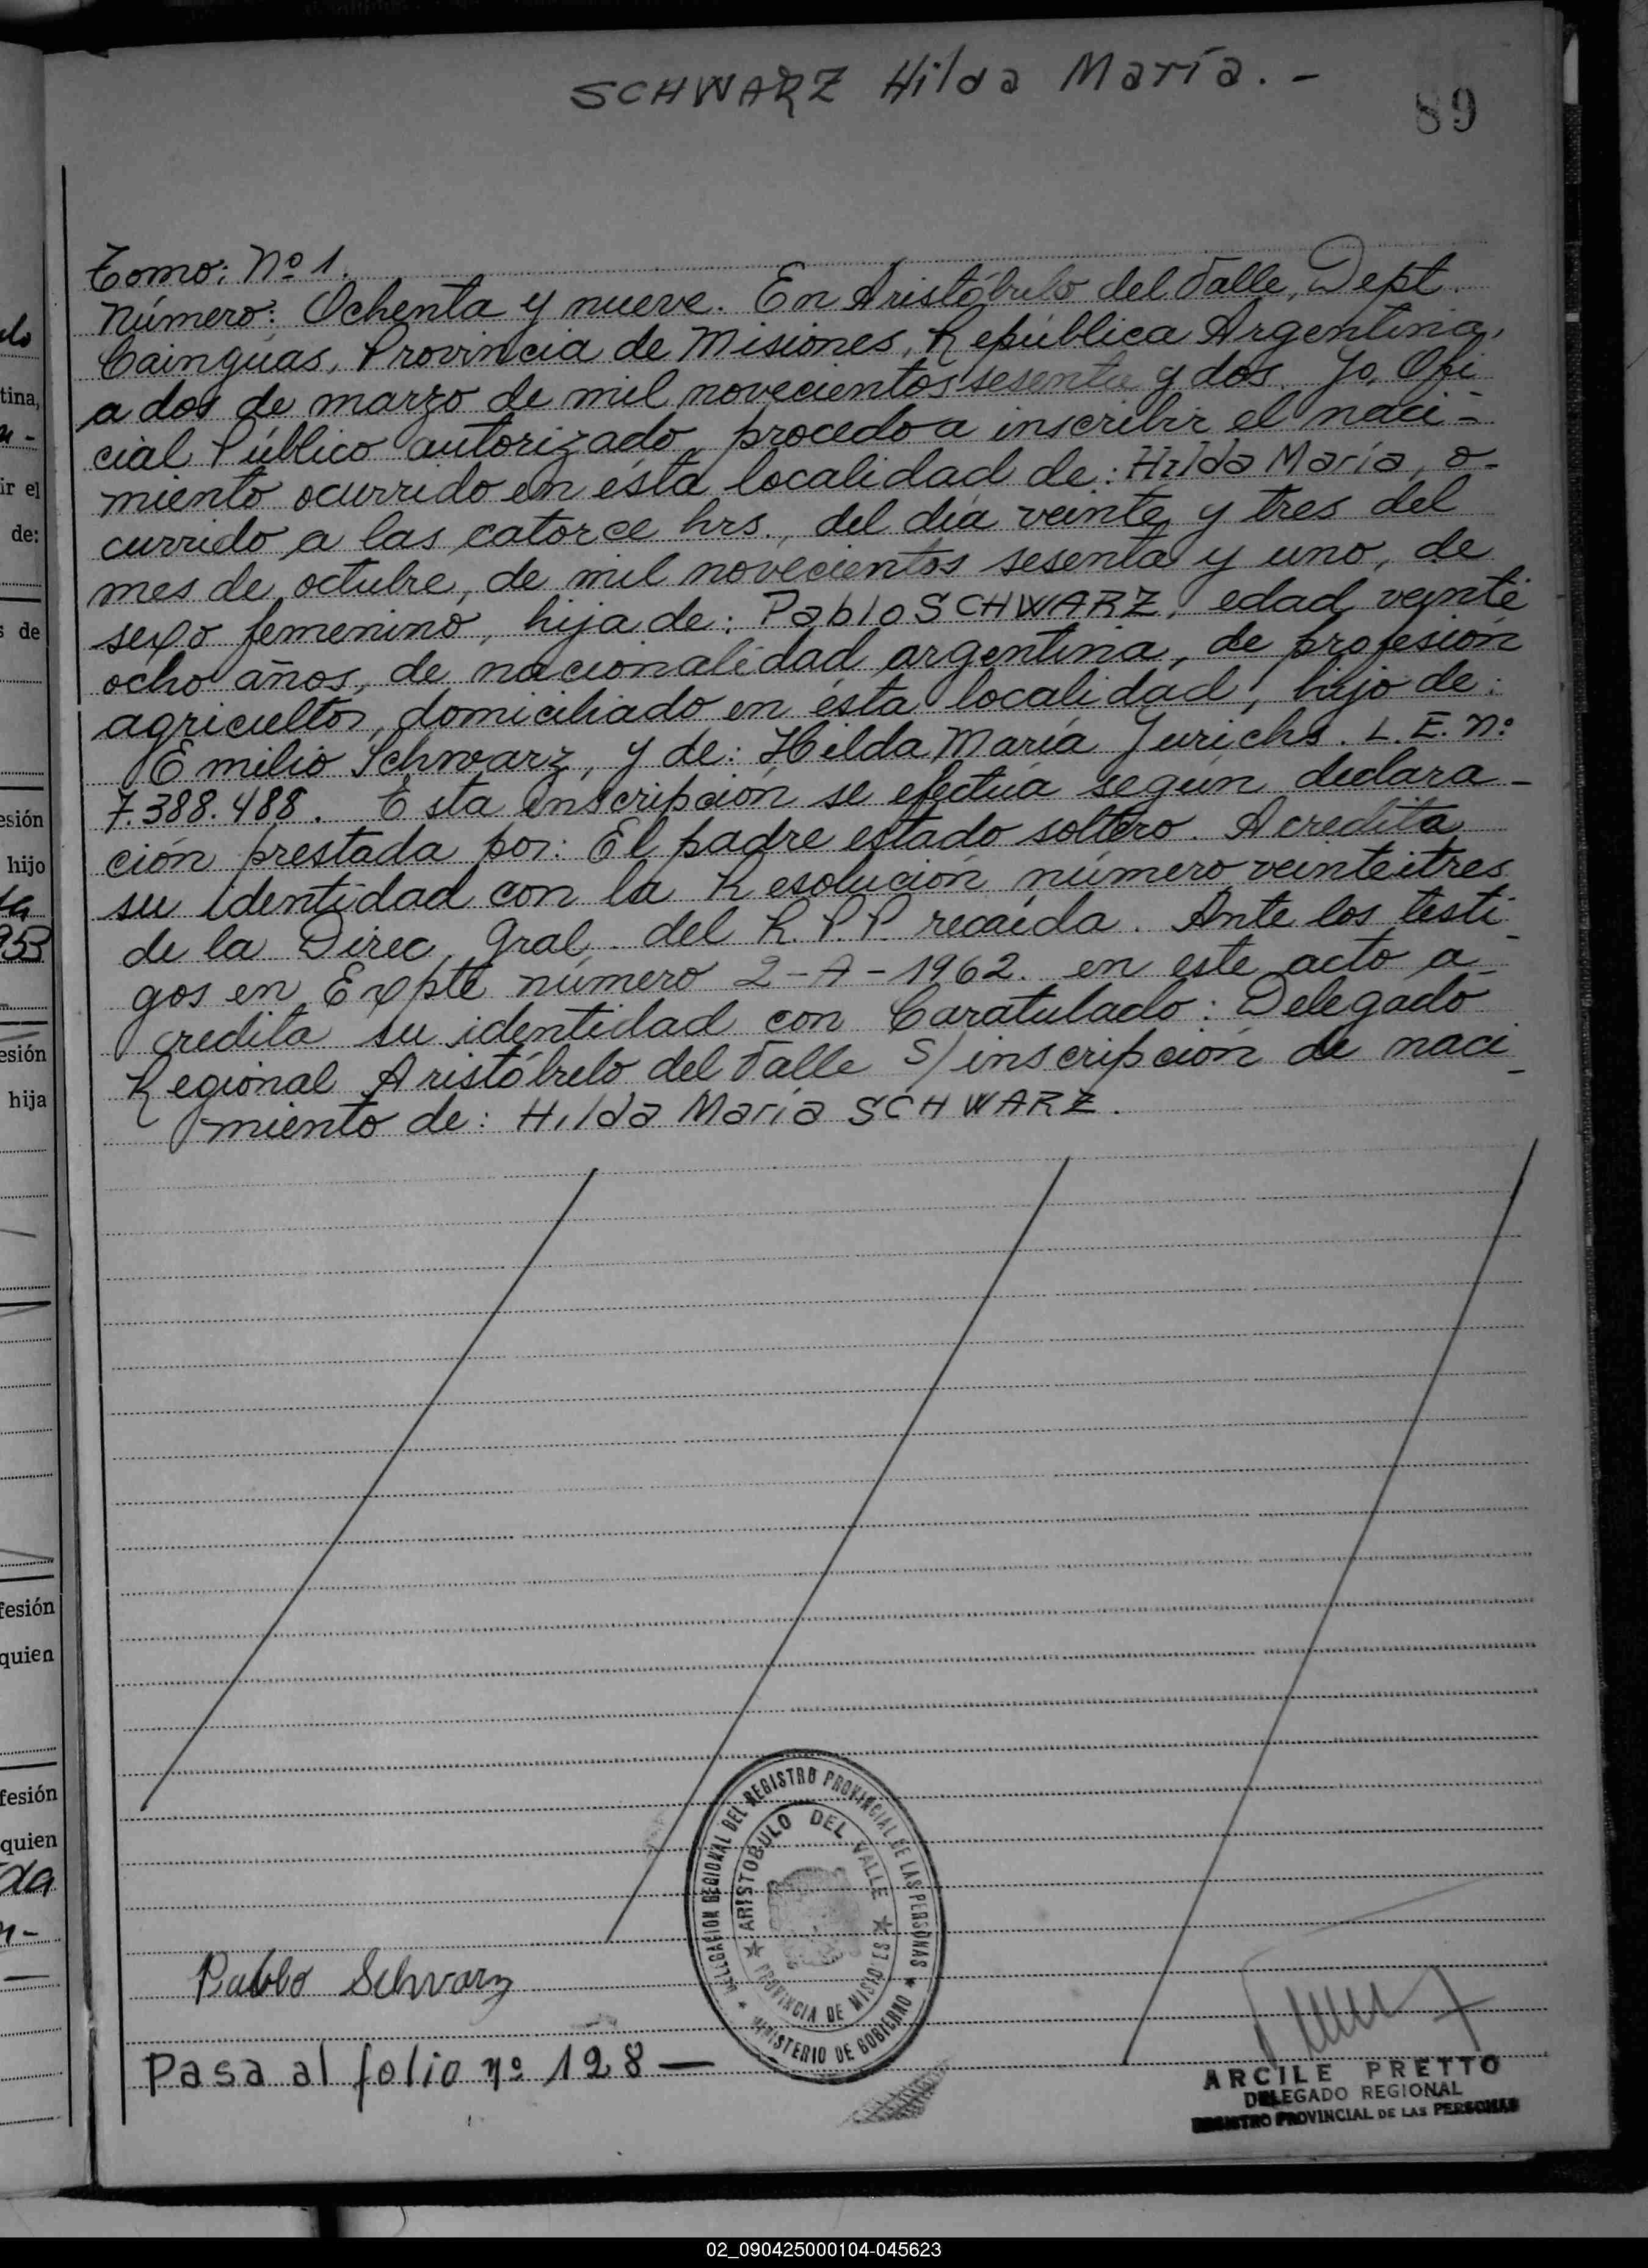 SCHWARZ Hilda María. -
89
Tomo: Nº 1.
Número: Ochenta y nueve. En Aristóbulo del Valle, Dept.
Cainguas, Provincia de Misiones, República Argentina,
a dos de marzo de mil novecientos sesenta y dos. Yo, Ofi
cial Público autorizado, procedo a inscribir el naci-
miento ocurrido en ésta localidad de: Hilda María, o-
currido a las catorce hrs., del día veinte y tres del
mes de octubre, de mil novecientos sesenta y uno, de
sexo femenino, hija de: Pablo SCHWARZ, edad veinte
ocho años, de nacionalidad argentina, de profesión
agricultor, domiciliado en ésta localidad, hijo de:
Emilio Schwarz, y de: Hilda María Jurichs. L.E. Nº
7.388.488. Esta inscripción se efectúa según declara-
ción prestada por: El padre estado soltero. Acredita
su identidad con la Resolución número veinteitres
de la Direc. Gral. del R.P.P. recaída. Ante los testi-
gos en Expte número 2-A-1962. en este acto a-
credita su identidad con Caratulado: Delegado
Regional Aristóbulo del Valle S/inscripción de naci-
miento de: Hilda María SCHWARZ.
DELEGACION REGIONAL DEL REGISTRO PROVINCIAL DE LAS PERSONAS
★ MINISTERIO DE GOBIERNO ★
★ ARISTOBULO DEL VALLE ★
PROVINCIA DE MISIONES
Pablo Schwarz
Pasa al folio nº 128 —
ARCILE PRETTO
DELEGADO REGIONAL
REGISTRO PROVINCIAL DE LAS PERSONAS
tina,
ir el
de:
s de
esión
hijo
953
esión
hija
fesión
quien
fesión
quien
da
02_090425000104-045623